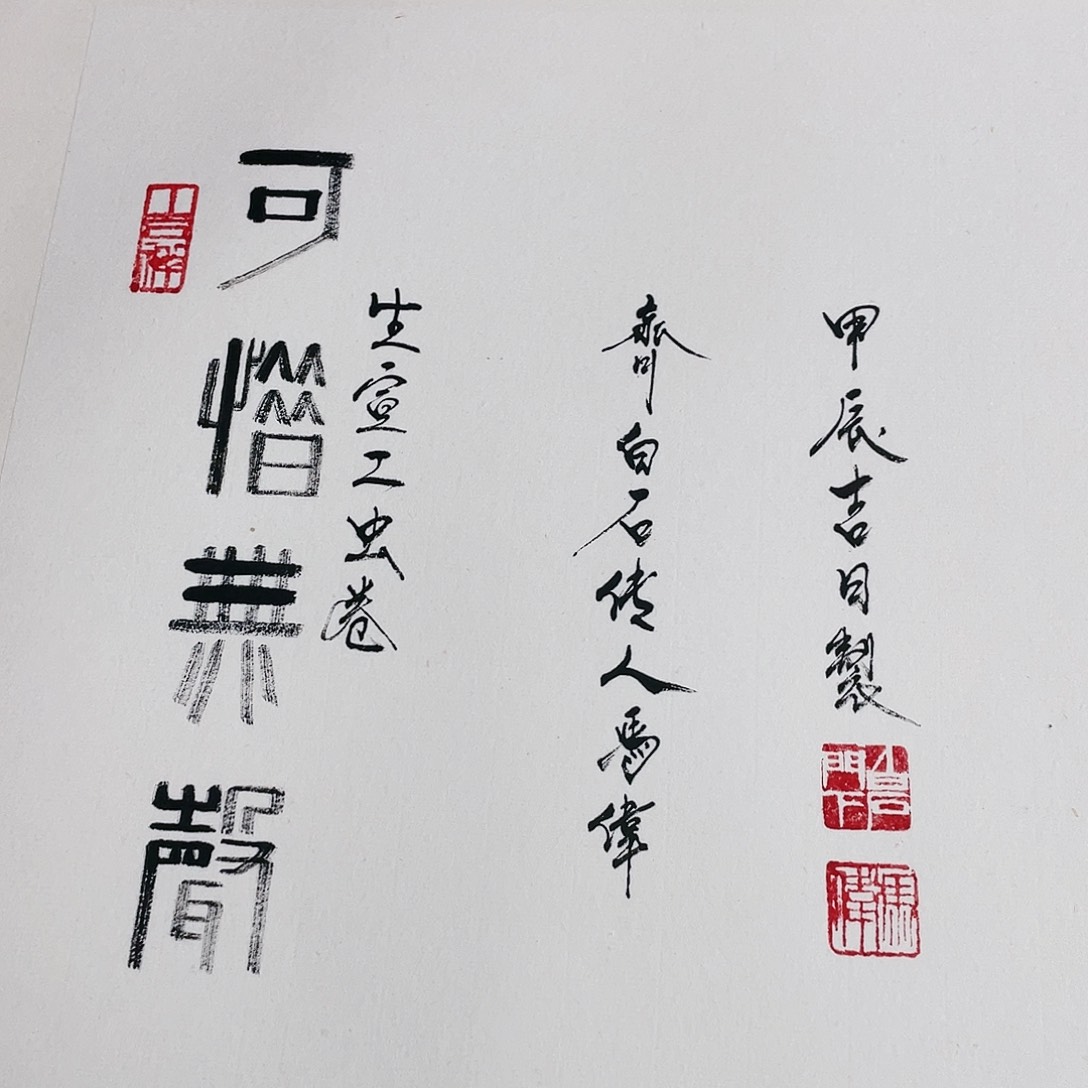 可惜無聲
生宣工虫卷
齊白石传人馬偉
甲辰吉日製
馬偉